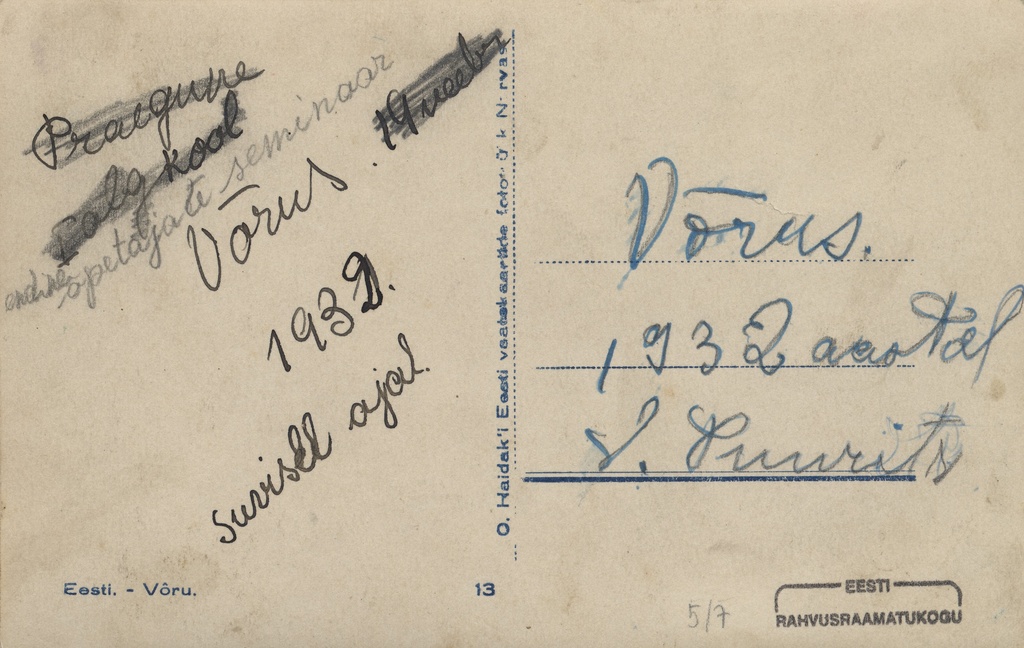 Praegune
algkool
endine õpetajate seminaar
Võrus. 19 veebr
1932.
suvisel ajal.
O. Haidak'i Eesti vaatekaartide fototrükk Narvas
Võrus.
1932 aastal
Eesti. - Võru.
13
5/7
EESTI
RAHVUSRAAMATUKOGU